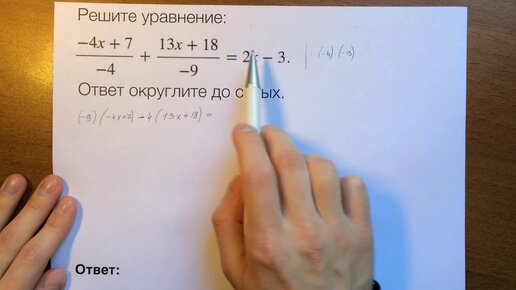 Решите уравнение:
−4x + 7 / −4 + 13x + 18 / −9 = 2x − 3. | · (−4) · (−9)
Ответ округлите до
(−9) (−4x+7) − 4 (13x + 18) =
Ответ: